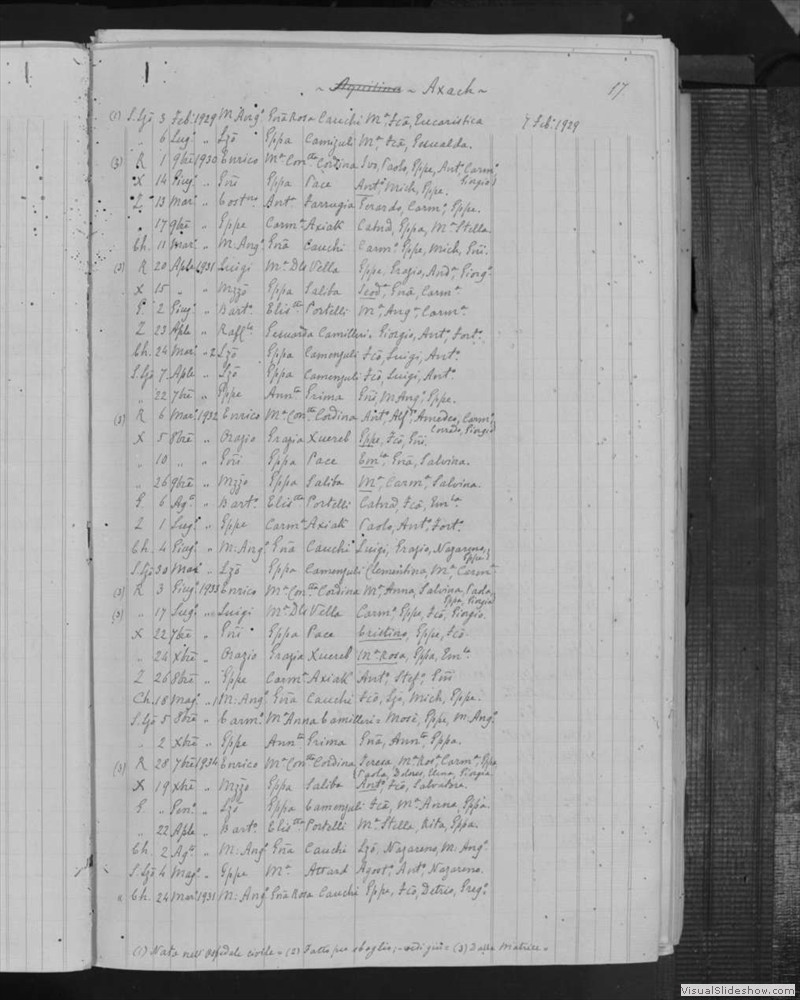 ~ Aquilina ~ Axach ~
17
(1) S. Ljō 3 Feb. 1929 M. Angº Gnā Rosa Cauchi Mª, Fcō, Eucaristica 7 Feb. 1929
" 6 Lugº " Ljō Eppa Camizuli Mª, Fcō, Gesualda.
(3) R 1 9bre 1930 Enrico Mª Con.tta Cordina Ivo, Paolo, Eppe, Antº, Carmº
Giorgio
X 14 Giugº " Gnī Eppa Pace Antº, Mich, Eppe.
13 Marº " Costno Antª Farrugia Gerardo, Carmº, Eppe.
" 17 9bre " Eppe Carmª Axiak Cathd, Eppa, Mª Stella
Ch. 11 Marº " M. Angº Gnā Cauchi Carmº, Eppe, Mich, Gnī.
(3) R 20 Aple 1931 Luigi Mª Dls Vella Eppe, Grazio, Andª, Giorgº
X 15 " " Mzzō Eppa Saliba Teodª, Gnā, Carmª
G. 2 Giugº " Bartº Elistta Portelli Mª, Angª, Carmª
Z 23 Aple " Rafflе Gesuarda Camilleri = Giorgio, Antº, Fortº
Ch. 24 Marº " 2 Ljō Eppa Camenzuli Fcō, Luigi, Antº
S. Ljō 7 Aple " Ljō Eppa Camenzuli Fcō, Luigi, Antº
" 22 7bre " Eppe Anntta Grima Gnī, M. Angº, Eppe.
(3) R 6 Marº 1932 Enrico Mª Con.tta Cordina Antº, Alfº, Amedeo, Carmº,
Corrado, Giorgio
X 5 8bre " Orazio Grazia Xuereb Eppe, Fcō, Gnī
" 10 " " Gnī Eppa Pace Emla, Gnā, Salvina.
" 26 9bre " Mzzō Eppa Saliba Mª, Carmª, Salvina.
G. 6 Agto " Bartº Elistta Portelli Cathd, Fcā, Emla
Z 1 Lugº " Eppe Carmª Axiak Paolo, Antº, Fortº
Ch. 4 Giugº " M: Angº Gnā Cauchi Luigi, Grazio, Nazareno,
Eppe
S. Ljō 30 Marº " Ljō Eppa Camenzuli Clementina, Mª, Carmª
(3) R 3 Giugº 1933 Enrico Mª Con.tta Cordina Mª, Anna, Salvina, Paola,
Eppa, Giorgia
(3) " 17 Lugº " Luigi Mª Dls Vella Carmº, Eppe, Fcō, Giorgio.
X 22 7bre " Gnī Eppa Pace Cristino, Eppe, Fcō.
" 24 Xbre " Orazio Grazia Xuereb Mª Rosa, Eppa, Emla
Z 26 8bre " Eppe Carmª Axiak Antº, Stefº, Gnī
Ch. 18 Magº " M: Angº Gnā Cauchi Fcō, Ljō, Mich, Eppe.
S. Ljō 5 8bre " Carmº Mª Anna Camilleri = Mosè, Eppe, M. Angº
" 2 Xbre " Eppe Anntta Grima Gnā, Anntta, Eppa.
(3) R 28 7bre 1934 Enrico Mª Con.tta Cordina Teresa, Mª Rosª, Carmª, Eppa,
Paola, Dolores, Giorgia
X 19 Xbre " Mzzō Eppa Saliba Antº, Fcō, Salvatore.
G " Genº " Ljō Eppa Camenzuli Fcā, Mª Anna, Eppa.
" 22 Aple " Bartº Elistta Portelli Mª Stella, Rita, Eppa.
Ch. 2 Agto " M: Angº Gnā Cauchi Ljō, Nazareno, M: Angº
S. Ljō 4 Magº " Eppe Mª Attard Agostº, Antº, Nazareno.
" Ch. 24 Marº 1931 M: Angº Gnā Rosa Cauchi Eppe, Fcō, Gregº
(1) Nato nell' ospedale civile = (2) Fatto per sbaglio; vedi giù = (3) Dalla Matrice =
VisualSlideshow.com